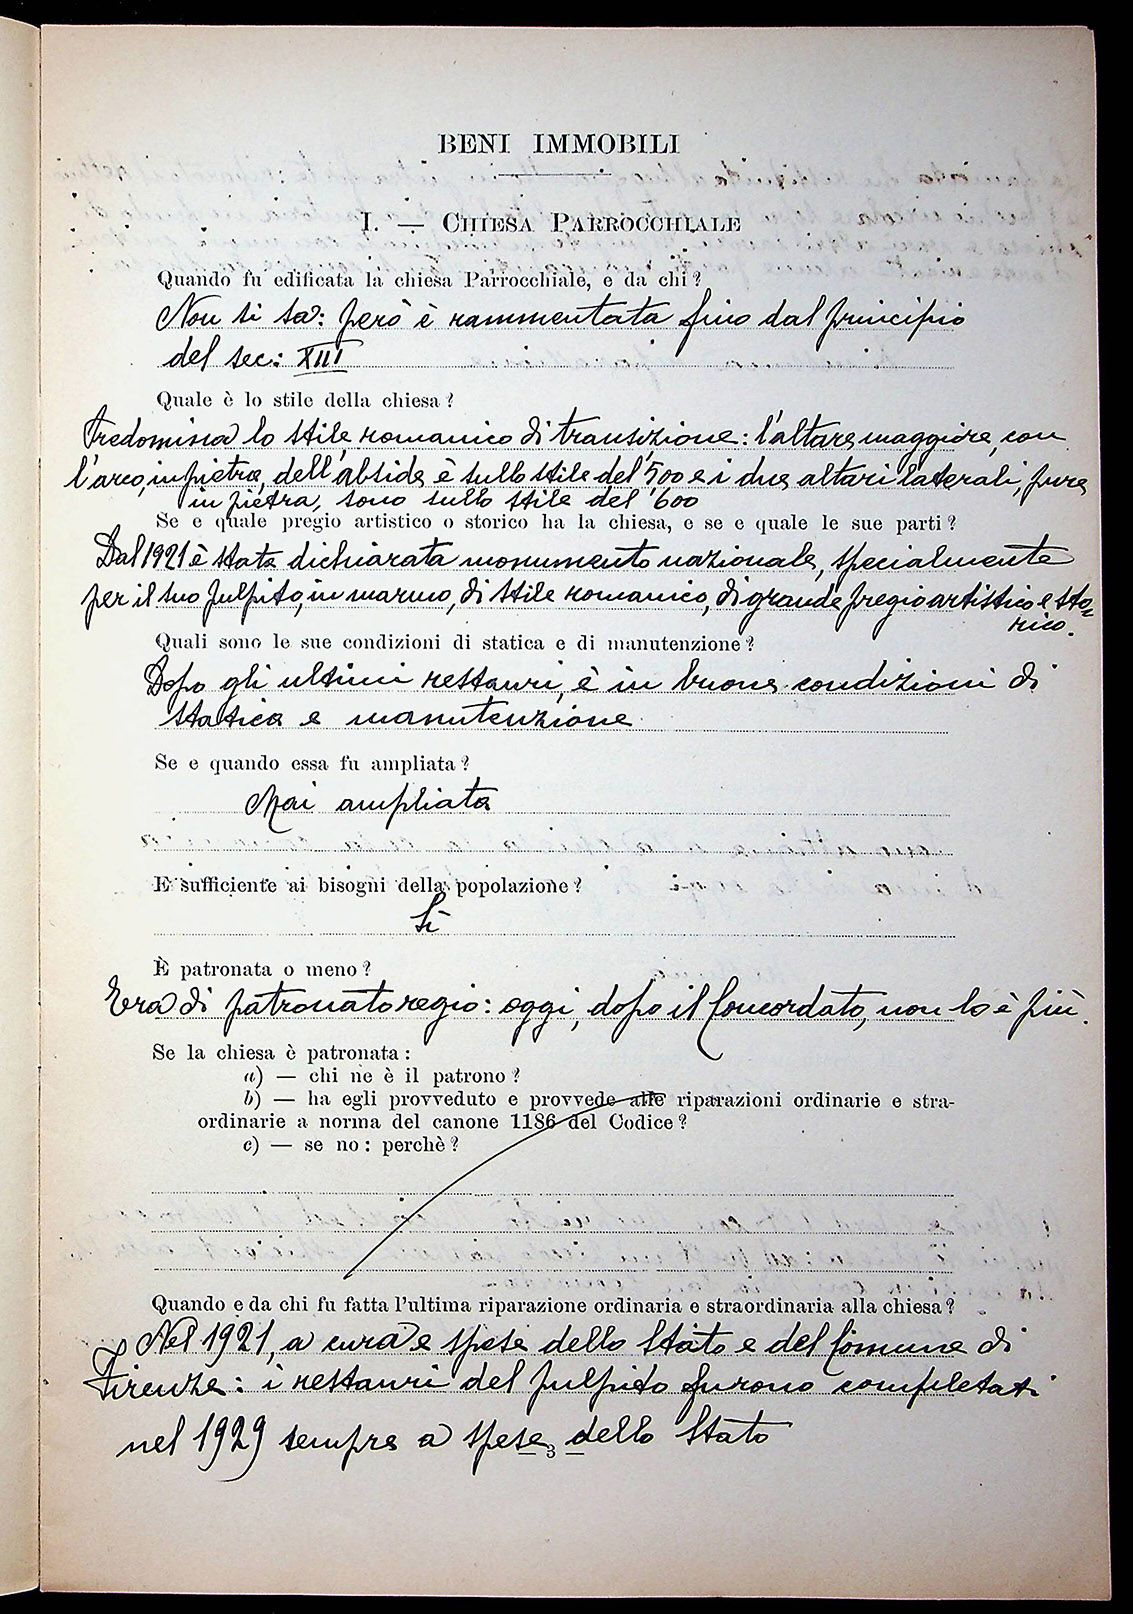 BENI IMMOBILI
I. — CHIESA PARROCCHIALE
Quando fu edificata la chiesa Parrocchiale, e da chi?
Non si sa: però è rammentata fino dal principio
del sec: XIII
Quale è lo stile della chiesa?
Predomina lo stile romanico di transizione: l'altare maggiore, con
l'arco, in pietra, dell'abside è sullo stile del '500 e i due altari laterali, pure
in pietra, sono sullo stile del '600
Se e quale pregio artistico o storico ha la chiesa, e se e quale le sue parti?
Dal 1921 è stata dichiarata monumento nazionale, specialmente
per il suo pulpito, in marmo, di stile romanico, di grande pregio artistico e sto=
rico.
Quali sono le sue condizioni di statica e di manutenzione?
Dopo gli ultimi restauri, è in buone condizioni di
statica e manutenzione
Se e quando essa fu ampliata?
Mai ampliata
E sufficiente ai bisogni della popolazione?
Sì
È patronata o meno?
Era di patronato regio: oggi, dopo il Concordato, non lo è più.
Se la chiesa è patronata:
a) — chi ne è il patrono?
b) — ha egli provveduto e provvede alle riparazioni ordinarie e stra-
ordinarie a norma del canone 1186 del Codice?
c) — se no: perchè?
Quando e da chi fu fatta l'ultima riparazione ordinaria e straordinaria alla chiesa?
Nel 1921, a cura e spese dello Stato e del Comune di
Firenze: i restauri del pulpito furono completati
nel 1929 sempre a spese dello Stato
— 3 —